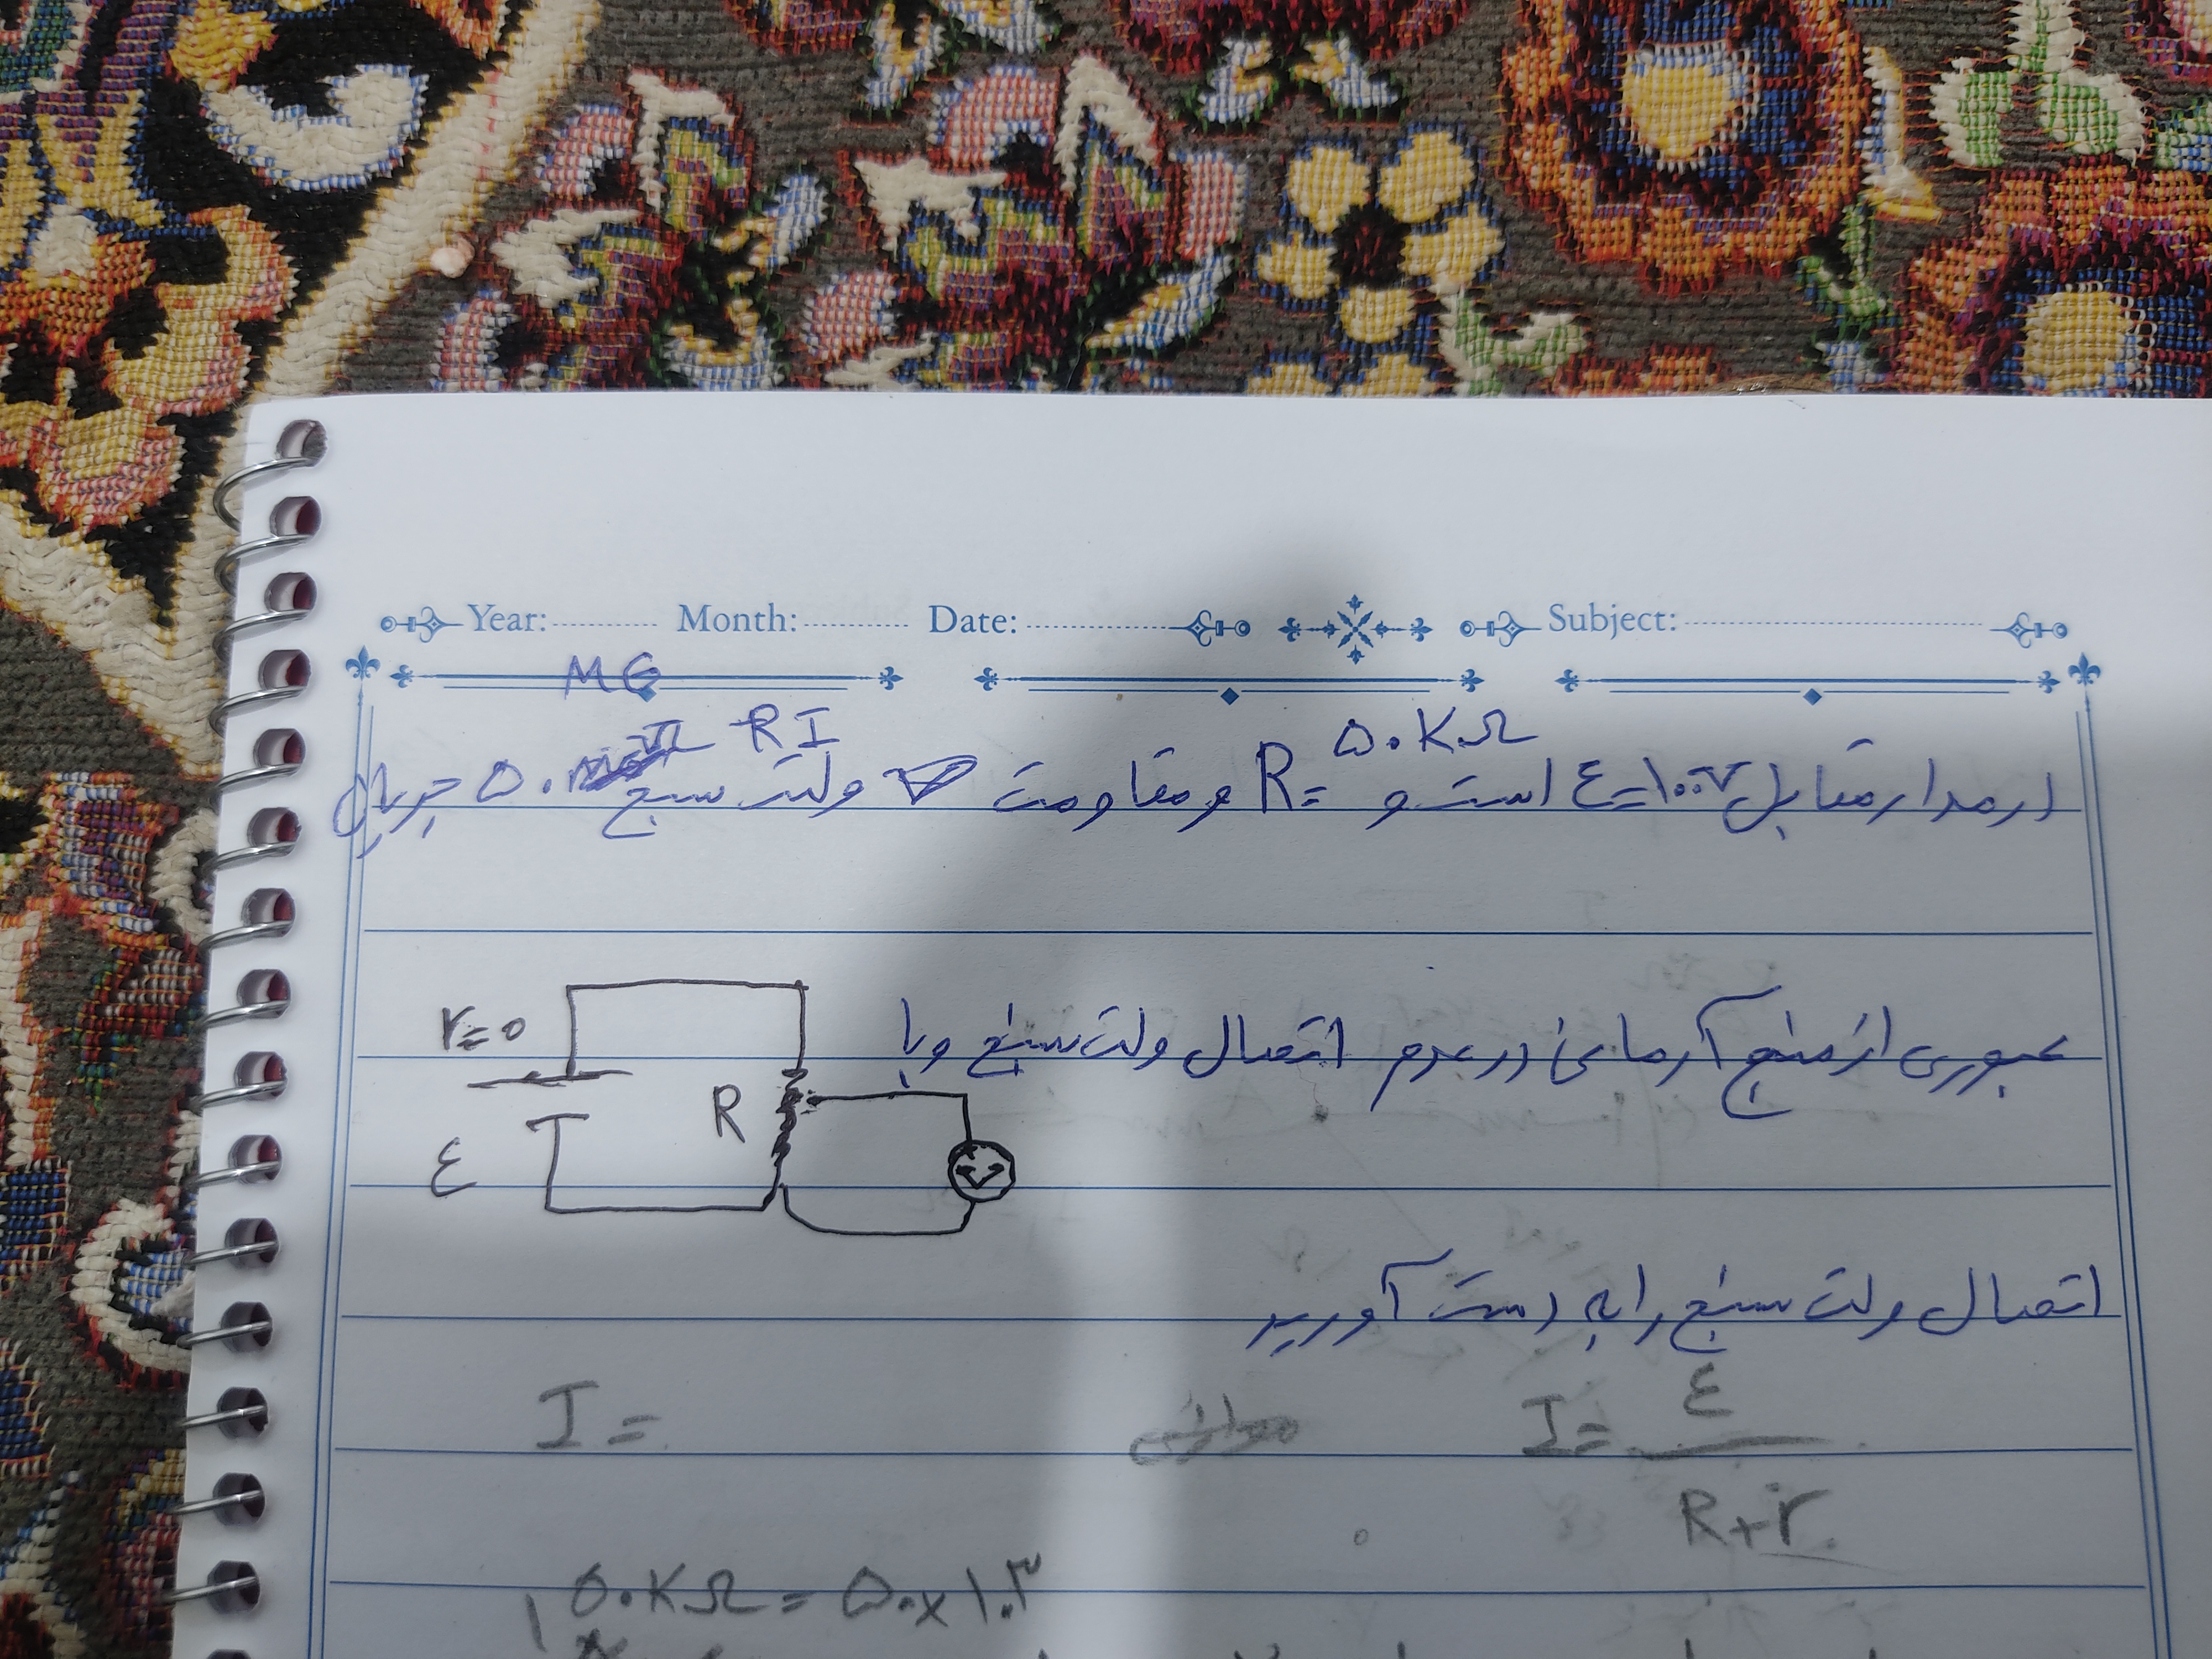 Year: Month: Date: Subject:
MG
در مدار مقابل ε=۱۰۰V است و R= ۵۰KΩ و مقاومت ولت سنج ۵۰ جریان
RI
عبوری از منبع آرمانی در عدم اتصال ولت سنج و با
اتصال ولت سنج را به دست آورید
r=0
R
ε
V
I = ε
R+r
I =
۵۰KΩ = ۵۰×۱۰³